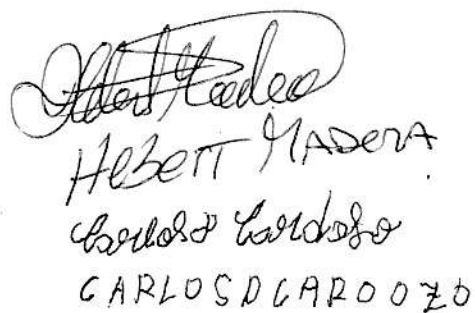 HEBERT MADERA
Carlos D Cardozo
CARLOS D CARDOZO